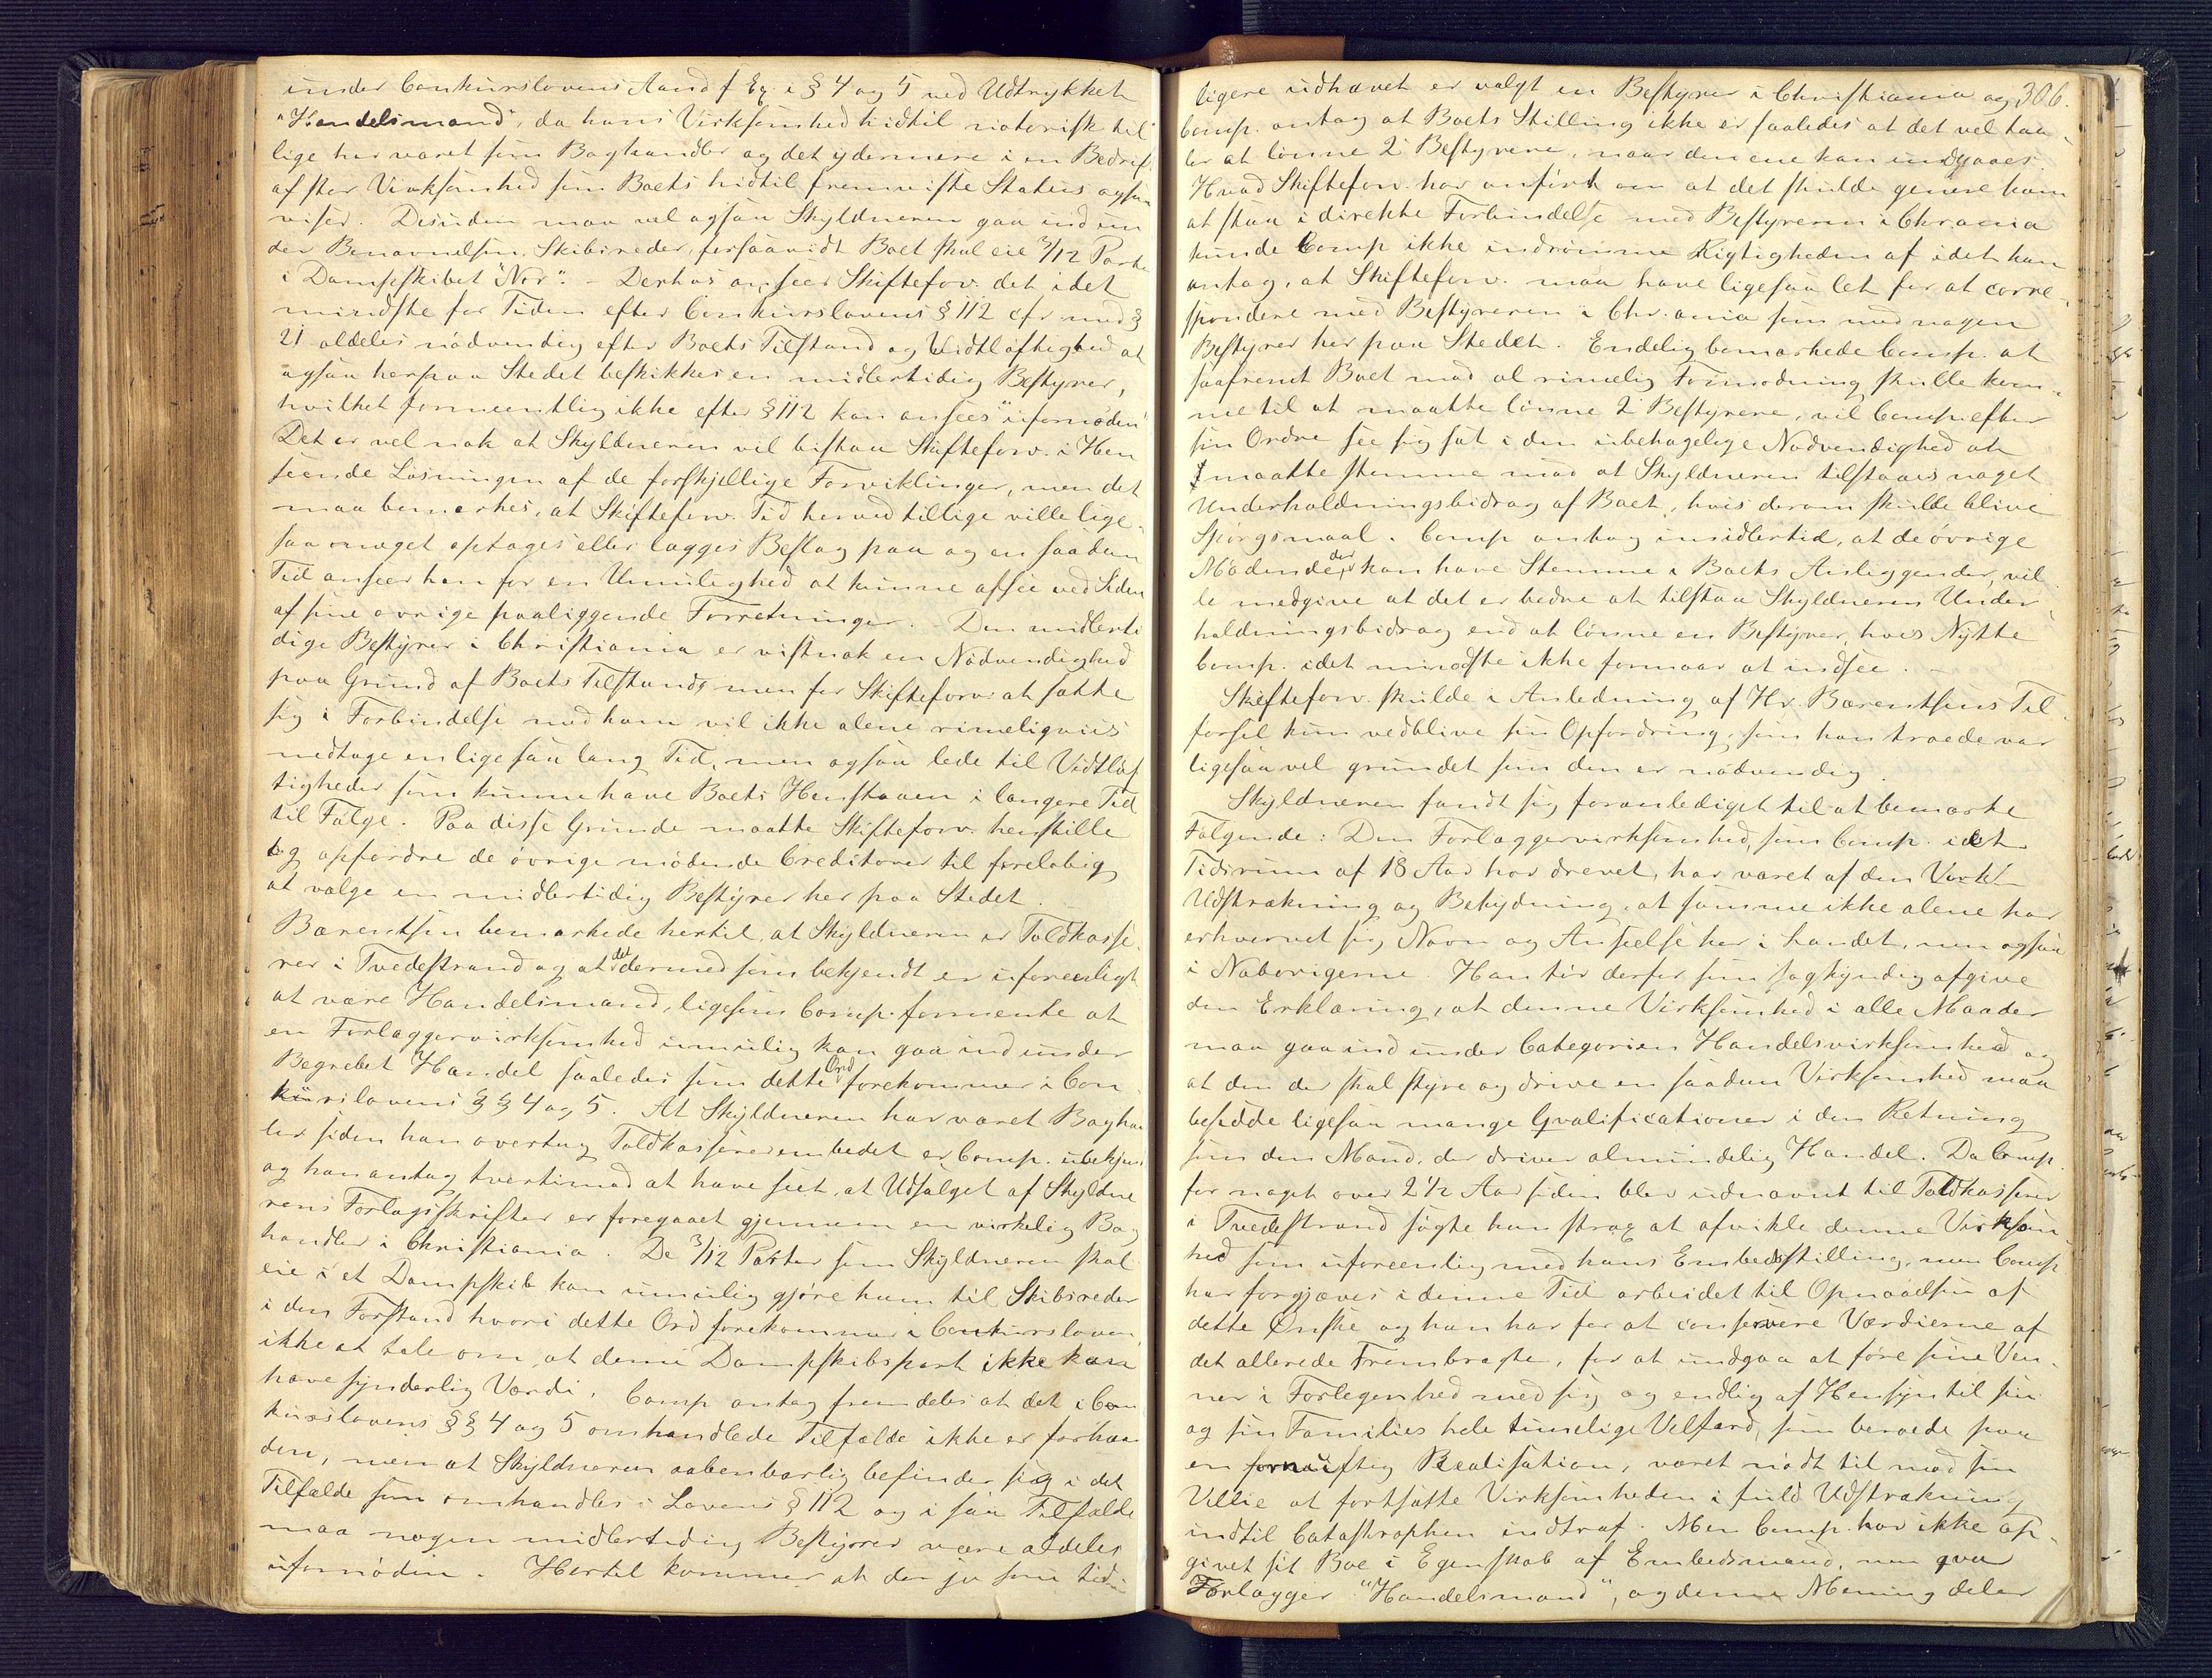 under Conkurslovens Aand f Ex i § 4 og 5 ved Udtrykket
"Handelsmand", da hans Virksomhed hidtil notorisk til
lige har været som Boghandler og det ydermere i en Bedrift
af stor Virksomhed som Boets hidtil fremviste Status ogsaa
viser. Desuden maa vel ogsaa Skyldneren gaa ind un
der Benævnelsen Skibsreder, forsaavidt Boet skal eie 3/12 Parter
i Dampskibet "Nor". - Derhos anseer Skiftefor. det idet
mindste for Tiden efter Conkurslovens § 112 cfr med §
21 aldeles nødvendig efter Boets Tilstand og Vidtløftighed at
ogsaa herpaa Stedet beskikkes en midlertidig Bestyrer,
hvilket formeentlig ikke efter § 112 kan ansees "ufornøden"
Det er vel nok at Skyldneren vil bistaa Skifteforv. i Hen
seende Løsningen af de forskjellige Forviklinger, men det
maa bemærkes, at Skifteforv. Tid herved tillige ville lige-
saa meget optages eller lægges Beslag paa og en saadan
Tid anseer han for en Umulighed at kunne afsee ved Siden
af sine øvrige paaliggende Forretninger. - Den midlerti
dige Bestyrer i Christiania er vistnok en Nødvendighed
paa Grund af Boets Tilstand, men for Skifteforv. at sætte
sig i Forbindelse med ham vil ikke alene rimeligviis
medtage en lige saa lang Tid, men ogsaa lede til Vidtløf
tigheder som kunne have Boets Henstaaen i længere Tid
til Følge. Paa disse Grunde maatte Skifteforv. henstille
og opfordre de øvrige mødende Creditorer til foreløbig
at vælge en midlertidig Bestyrer her paa Stedet.
Bærentsen bemærkede hertil, at Skyldneren er Toldkasse-
rer i Tvedestrand og at det dermed som bekjendt er uforeenligt
at være Handelsmand, ligesom Comp. formente at
en Forlæggervirksomhed umulig kan gaa ind under
Begrebet Handel saaledes som dette Ord forekommer i Con
kurslovens §§ 4 og 5. At Skyldneren har været Boghand
ler siden han overtog Toldkassererembedet er Comp. ubekjendt
og han antog tvertimod at have seet, at Udsalget af Skyldne
rens Forlagsskrifter er foregaaet gjennem en virkelig Bog
handler i Christiania. De 3/12 Parter som Skyldneren skal
eie i et Dampskib kan umulig gjøre ham til Skibsreder
i den Forstand hvori dette Ord forekommer i Conkursloven,
ikke at tale om, at denne Dampskibspart ikke kan
have synderlig Værdi. Comp antog fremdeles at det i Con
kurslovens §§ 4 og 5 omhandlede Tilfælde ikke er forhaan
den, men at Skyldneren aabenbarlig befinder sig i det
Tilfælde som omhandles i Lovens § 112 og i saa Tilfælde
maa nogen midlertidig Bestyrer være aldeles
ufornøden. Hertil kommer at der jo som tid-
306.
ligere udhævet er valgt en Bestyrer i Christiania og
Comp. antog at Boets Stilling ikke er saaledes at det vel taa-
ler at lønne 2 Bestyrere, naar den ene kan undgaaes.
Hvad Skifteforv. har anført om at det skulde genere ham
at staa i direkte Forbindelse med Bestyreren i Chrania
kunde Comp ikke indrømme Rigtigheden af idet han
antog, at Skifteforv. maa have ligesaa let for at corre-
spondere med Bestyreren i Chr.ania som med nogen
Bestyrer her paa Stedet. Endelig bemærkede Comp. at
saafremt Boet mod al rimelig Formodning skulle kom-
me til at maatte lønne 2 Bestyrere, vil Comp efter
sin Ordre see sig sat i den ubehagelige Nødvendighed at
maatte stemme mod at Skyldneren tilstaaes noget
Underholdningsbidrag af Boet, hvis derom skulde blive
Spørgsmaal. Comp antog imidlertid, at de øvrige
Mødende, der kan have Stemme i Boets Anliggender, vil
le medgive at det er bedre at tilstaa Skyldneren Under-
holdningsbidrag end at lønne en Bestyrer, hvis Nytte
Comp. idet mindste ikke formaar at indsee. -
Skifteforv. skulde i Anledning af Hr. Bærentsens Til
førsel kun vedblive sin Opfordring, som han troede var
ligesaa vel grundet som den er nødvendig.
Skyldneren fandt sig foranlediget til at bemærke
Følgende: Den Forlæggervirksomhed, som Comp. i et
Tidsrum af 18 Aar har drevet, har været af den
Udstrækning og Betydning, at samme ikke alene har
erhvervet sig Navn og Anseelse her i Landet, men ogsaa
i Naborigerne. Han tør derfor som sagkyndig afgive
den Erklæring, at denne Virksomhed i alle Maader
maa gaa ind under Categorien Handelsvirksomhed og
at den der skal styre og drive en saadan Virksomhed maa
besidde ligesaa mange Qvalificationer i den Retning
som den Mand, der driver almindelig Handel. Da Comp.
for noget over 2 1/2 Aar siden blev udnævnt til Toldkasserer
i Tvedestrand søgte han strax at afvikle denne Virksom-
hed som uforeenlig med hans Embedsstilling, men Comp.
har forgjæves i denne Tid arbeidet til Opnaaelsen af
dette Ønske og han har for at conservere Værdierne af
det allerede Frembragte, for at undgaa at føre sine Ven-
ner i Forlegenhed med sig og endlig af Hensyn til sin
og sin Families hele timelige Velfærd, som beroede paa
en fornuftig Realisation, været nødt til mod sin
Villie at fortsætte Virksomheden i fuld Udstrækning
indtil Catastrophen indtraf. Men Comp. har ikke op-
givet sit Boe i Egenskab af Embedsmand, men qva
Forlægger "Handelsmand", og denne Mening deler